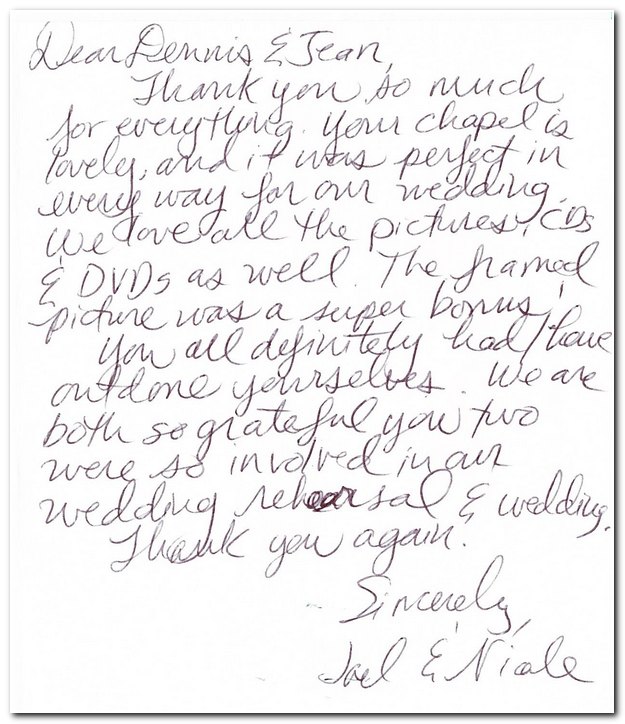 Dear Dennis & Jean,
Thank you so much
for everything. Your chapel is
lovely, and it was perfect in
every way for our wedding.
We love all the pictures, CDs
& DVDs as well. The framed
picture was a super bonus!
You all definitely had/have
outdone yourselves. We are
both so grateful you two
were so involved in our
wedding rehearsal & wedding.
Thank you again.
Sincerely,
Joel & Nicole